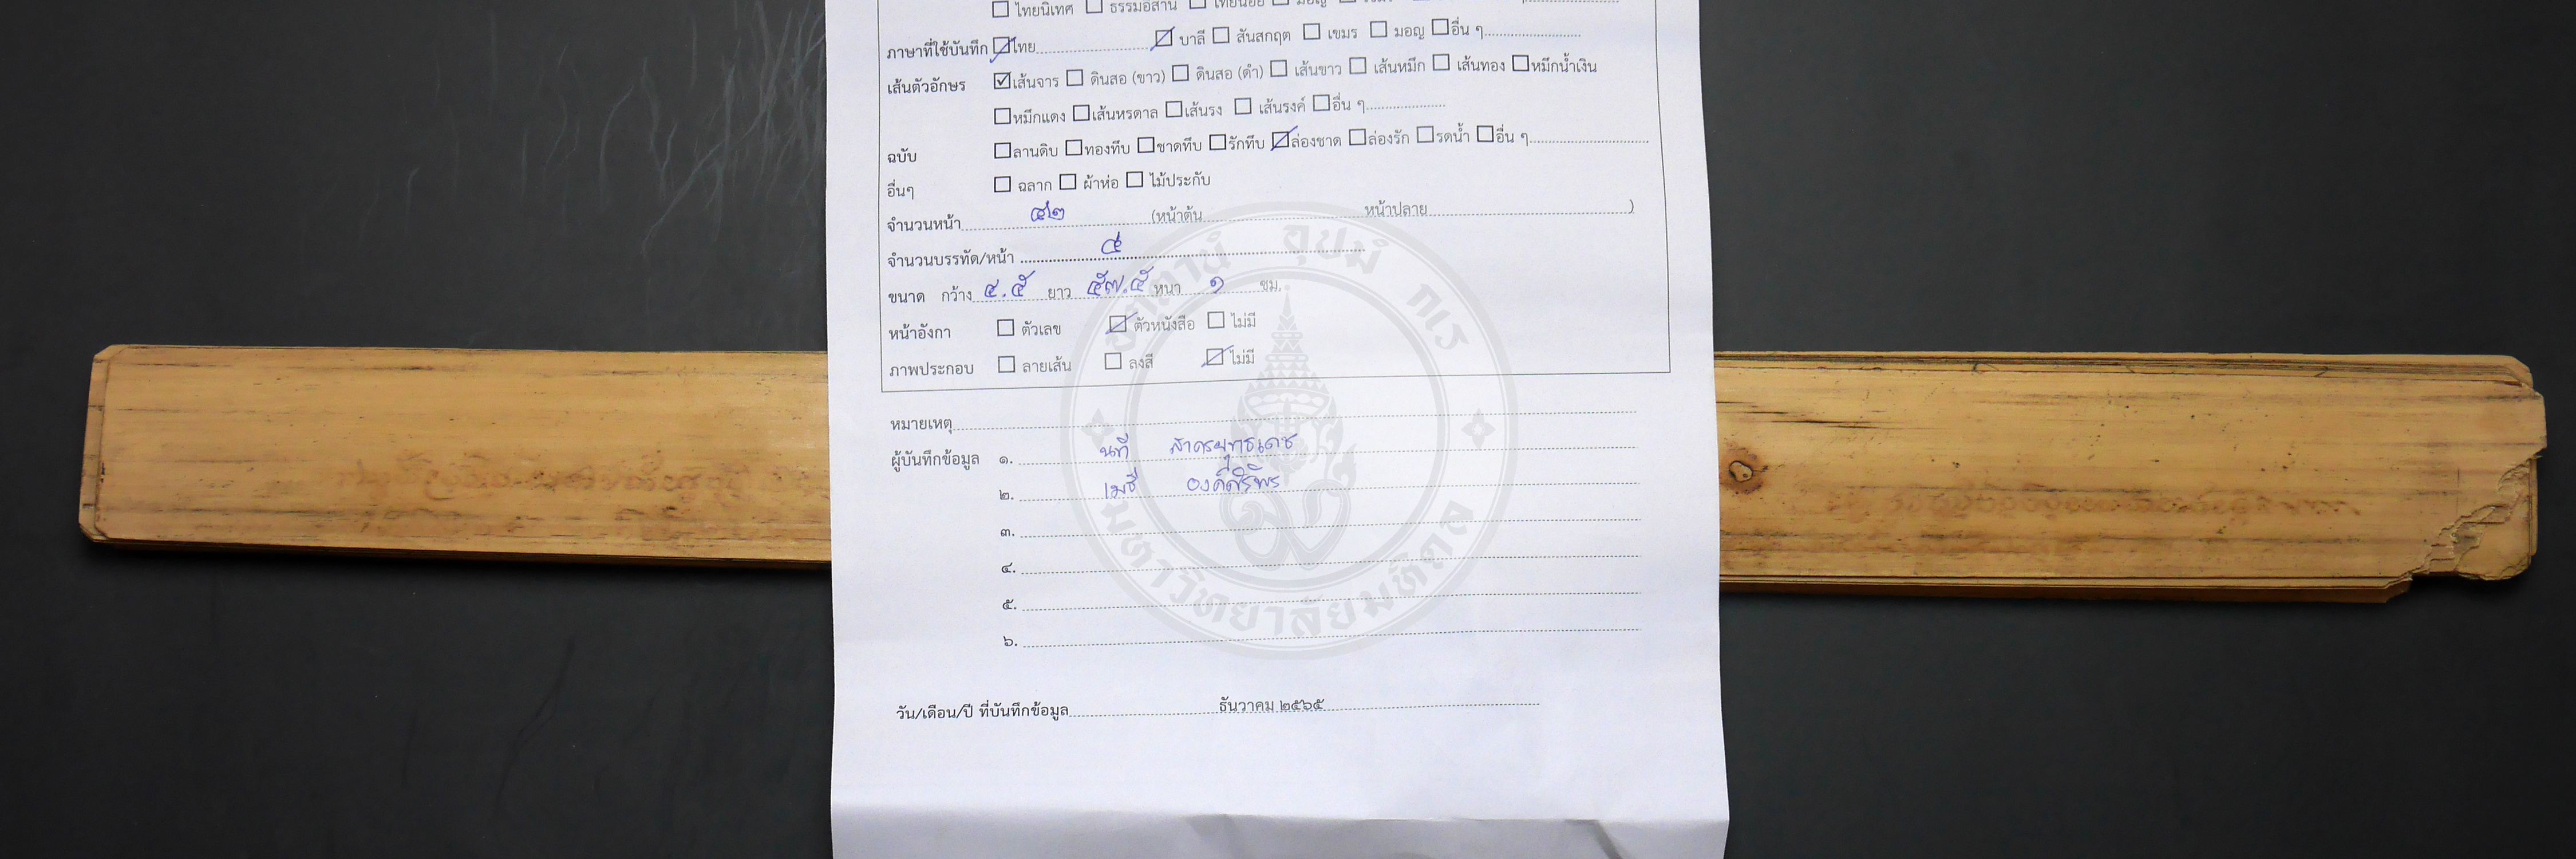 ☐ ไทยนิเทศ ☐ ธรรมอีสาน ☐ ไทยน้อย ☐ มอญ ☐
ภาษาที่ใช้บันทึก ☑ไทย ☑ บาลี ☐ สันสกฤต ☐ เขมร ☐ มอญ ☐อื่น ๆ
เส้นตัวอักษร ☑เส้นจาร ☐ ดินสอ (ขาว) ☐ ดินสอ (ดำ) ☐ เส้นขาว ☐ เส้นหมึก ☐ เส้นทอง ☐หมึกน้ำเงิน
☐หมึกแดง ☐เส้นหรดาล ☐เส้นรง ☐ เส้นรงค์ ☐อื่น ๆ
ฉบับ ☐ลานดิบ ☐ทองทึบ ☐ชาดทึบ ☐รักทึบ ☑ล่องชาด ☐ล่องรัก ☐รดน้ำ ☐อื่น ๆ
อื่นๆ ☐ ฉลาก ☐ ผ้าห่อ ☐ ไม้ประกับ
จำนวนหน้า (หน้าต้น หน้าปลาย )
จำนวนบรรทัด/หน้า
ขนาด กว้าง ๔.๕ ยาว ๕๗.๕ หนา ๑ ซม.
หน้าอังกา ☐ ตัวเลข ☑ ตัวหนังสือ ☐ ไม่มี
ภาพประกอบ ☐ ลายเส้น ☐ ลงสี ☑ ไม่มี
หมายเหตุ
ผู้บันทึกข้อมูล ๑. นที สาครยุทธเดช
๒. เมธี องค์ศิริพร
๓.
๔.
๕.
๖.
วัน/เดือน/ปี ที่บันทึกข้อมูล ธันวาคม ๒๕๖๕
อตฺตานํ อุปมํ กเร
มหาวิทยาลัยมหิดล